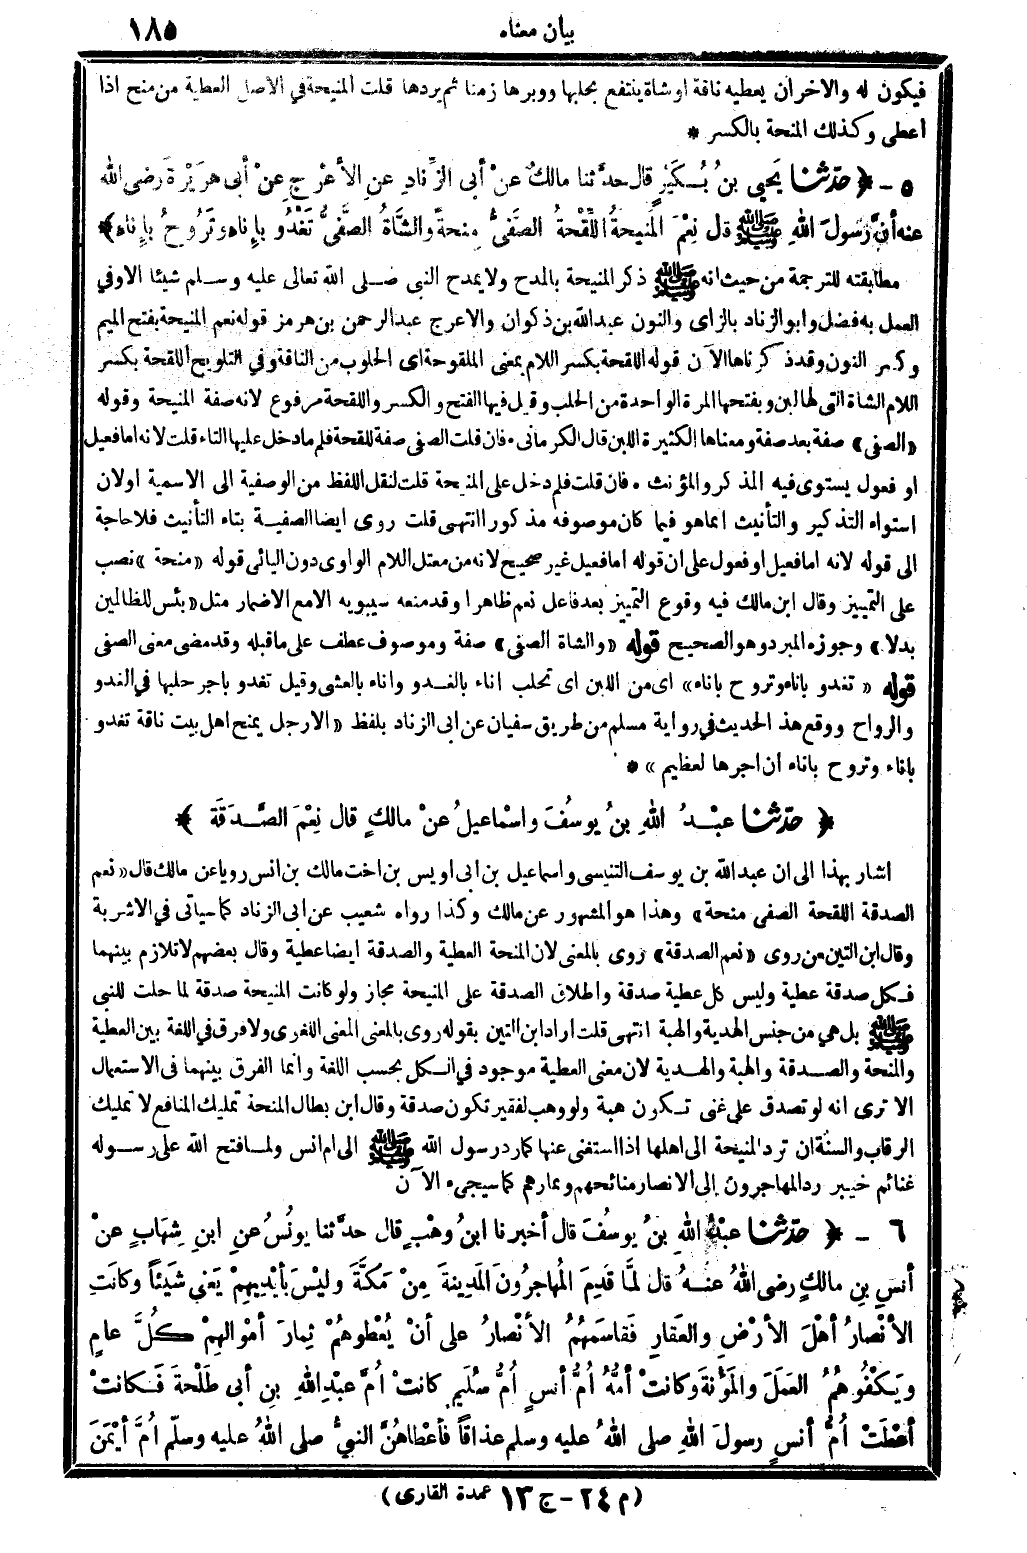 بيان معناه ١٨٥
فيكون له والاخر ان يعطيه ناقة او شاة ينتفع بحلبها ووبرها زمنا ثم يردها قلت المنيحة في الاصل العطية من منح اذا
أعطى وكذلك المنحة بالكسر *
٥ - ﴿ حدثنا يَحْيى بنُ بُكَيْرٍ قال حدَّثنا مالكٌ عنْ أبى الزِّنادِ عنِ الأعْرَجِ عنْ أبى هرَيْرةَ رضى الله
عنه أنَّ رسولَ اللهِ ﷺ قال نِعْمَ المَنِيحةُ اللِّقْحةُ الصَّفىُّ مِنْحةً والشَّاةُ الصَّفىُّ تَغْدُو بإناءٍ وتَرُوحُ بإناءٍ ﴾
مطابقته للترجمة من حيث انه ﷺ ذكر المنيحة بالمدح ولا يمدح النبى صلى الله تعالى عليه وسلم شيئا الا وفي
العمل به فضل وابو الزناد بالزاى والنون عبدالله بن ذكوان والاعرج عبدالرحمن بن هرمز قوله نعم المنيحة بفتح الميم
وكسر النون وقد ذكرناها الآن قوله اللقحة بكسر اللام بمعنى الملقوحة اى الحلوب من الناقة وفي التلويح اللقحة بكسر
اللام الشاة التى لها لبن وبفتحها المرة الواحدة من الحلب وقيل فيها الفتح والكسر واللقحة مرفوع لانه صفة المنيحة وقوله
«الصفى» صفة بعد صفة ومعناها الكثيرة اللبن قال الكرمانى . فان قلت الصفى صفة للقحة فلم ما دخل عليها التاء قلت لانه اما فعيل
او فعول يستوى فيه المذكر والمؤنث . فان قلت فلم دخل على المنيحة قلت لنقل اللفظ من الوصفية الى الاسمية اولان
استواء التذكير والتأنيث انما هو فيما كان موصوفه مذكورا انتهى قلت روى ايضا الصفية بتاء التأنيث فلا حاجة
الى قوله لانه اما فعيل او فعول على ان قوله اما فعيل غير صحيح لانه من معتل اللام الواوى دون اليائى قوله «منحة» نصب
على التمييز وقال ابن مالك فيه وقوع التمييز بعد فاعل نعم ظاهرا وقد منعه سيبويه الا مع الاضمار مثل «بئس للظالمين
بدلا» وجوزه المبرد وهو الصحيح قوله «والشاة الصفى» صفة وموصوف عطف على ما قبله وقد مضى معنى الصفى
قوله «تغدو باناء وتروح باناء» اى من اللبن اى تحلب اناء بالغدو واناء بالعشى وقيل تغدو باجر حلبها في الغدو
والرواح ووقع هذا الحديث في رواية مسلم من طريق سفيان عن ابى الزناد بلفظ «الا رجل يمنح اهل بيت ناقة تغدو
باناء وتروح باناء ان اجرها لعظيم» *
﴿ حدثنا عبْدُ اللهِ بنُ يوسُفَ واسْماعيلُ عنْ مالكٍ قال نِعْمَ الصَّدَقَة ﴾
اشار بهذا الى ان عبدالله بن يوسف التنيسى واسماعيل بن أبى اويس بن اخت مالك بن انس رويا عن مالك قال «نعم
الصدقة اللقحة الصفى منحة» وهذا هو المشهور عن مالك وكذا رواه شعيب عن ابى الزناد كما سياتى في الاشربة
وقال ابن التين من روى «نعم الصدقة» روى بالمعنى لان المنحة العطية والصدقة ايضا عطية وقال بعضهم لا تلازم بينهما
فكل صدقة عطية وليس كل عطية صدقة واطلاق الصدقة على المنيحة مجاز ولو كانت المنيحة صدقة لما حلت للنبى
ﷺ بل هي من جنس الهدية والهبة انتهى قلت اراد ابن التين بقوله روى بالمعنى المعنى اللغوى ولا فرق في اللغة بين العطية
والمنحة والصدقة والهبة والهدية لان معنى العطية موجود في الكل بحسب اللغة وانما الفرق بينهما فى الاستعمال
الا ترى انه لو تصدق على غنى تكون هبة ولو وهب لفقير تكون صدقة وقال ابن بطال المنحة تمليك المنافع لا تمليك
الرقاب والسنة ان ترد المنيحة الى اهلها اذا استغنى عنها كما رد رسول الله ﷺ الى ام انس ولما فتح الله على رسوله
غنائم خيبر رد المهاجرون إلى الانصار منائحهم وثمارهم كما سيجىء الآن
٦ - ﴿ حدثنا عبْدُ اللهِ بنُ يوسُفَ قال أخبرنا ابنُ وهْبٍ قال حدَّثنا يونُسُ عنِ ابنِ شِهابٍ عنْ
أنسِ بنِ مالكٍ رضى اللهُ عنْهُ قال لمَّا قدِمَ المُهاجرُونَ المَدِينةَ مِنْ مَكَّةَ وليْسَ بأيْدِيهِمْ يَعْنى شَيْئاً وكانَتِ
الأنْصارُ أهْلَ الأرْضِ والعَقارِ فَقاسَمَهُمُ الأنْصارُ على أنْ يُعْطُوهُمْ ثِمارَ أمْوالِهِمْ كُلَّ عامٍ
ويَكْفُوهُمُ العَمَلَ والمَؤُنةَ وكانتْ أمُّهُ أمُّ أنسٍ أُمُّ سُلَيمٍ كانتْ أُمَّ عبْدِاللهِ بنِ أبى طَلْحةَ فَكانتْ
أعْطَتْ أُمُّ أنسٍ رسولَ اللهِ صلى اللهُ عليه وسلم عِذاقاً فأعْطاهُنَّ النبىُّ صلى اللهُ عليه وسلّم أُمَّ أيْمَنَ
(م ٢٤ - ج ١٣ عمدة القارى)